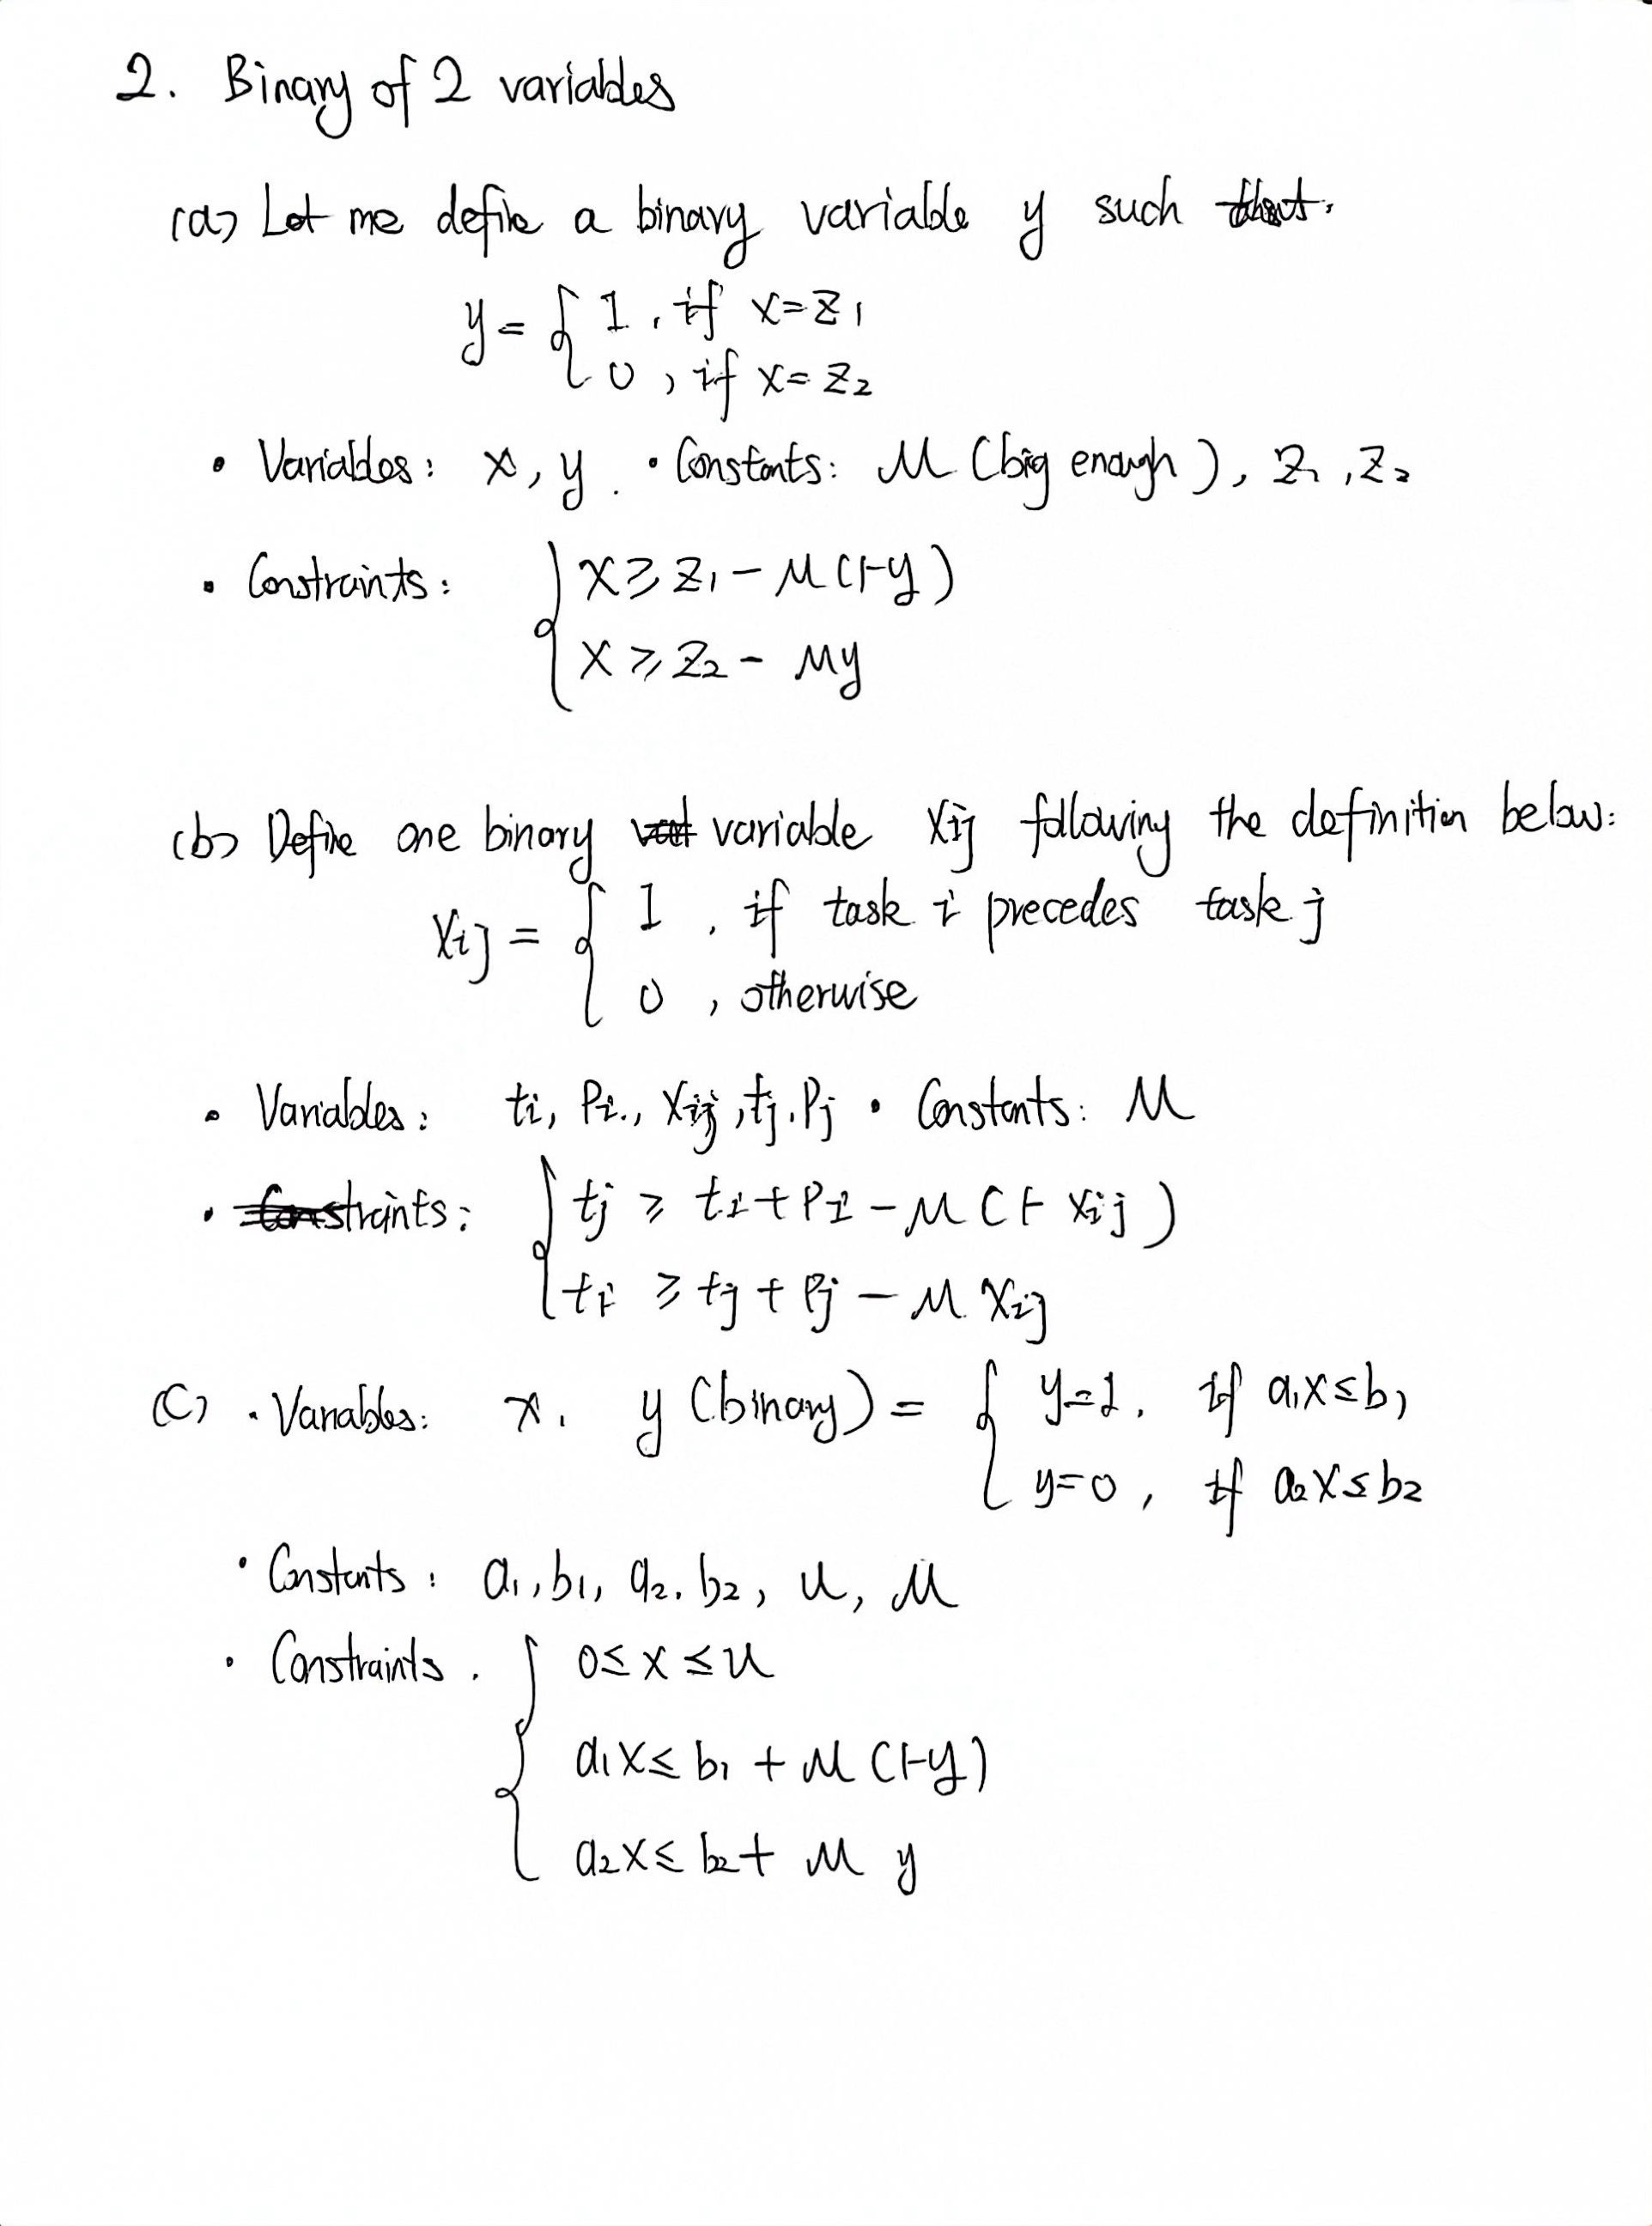 2. Binary of 2 variables
(a) Let me define a binary variable y such that.
y = { 1, if x=z1
0, if x=z2
• Variables: x, y. • Constants: M (big enough), z1, z2
• Constraints: { x ≥ z1 - M(1-y)
x ≥ z2 - My
(b) Define one binary variable xij following the definition below:
xij = { 1, if task i precedes task j
0, otherwise
• Variables: ti, Pi., xij, tj, Pj • Constants: M
• Constraints: { tj ≥ ti + Pi - M(1-xij)
ti ≥ tj + Pj - M xij
(c) • Variables: x. y (binary) = { y=1, if a1x≤b1
y=0, if a2x≤b2
• Constants: a1, b1, a2, b2, u, M
• Constraints. { 0≤x≤u
a1x≤b1 + M(1-y)
a2x≤b2 + M y